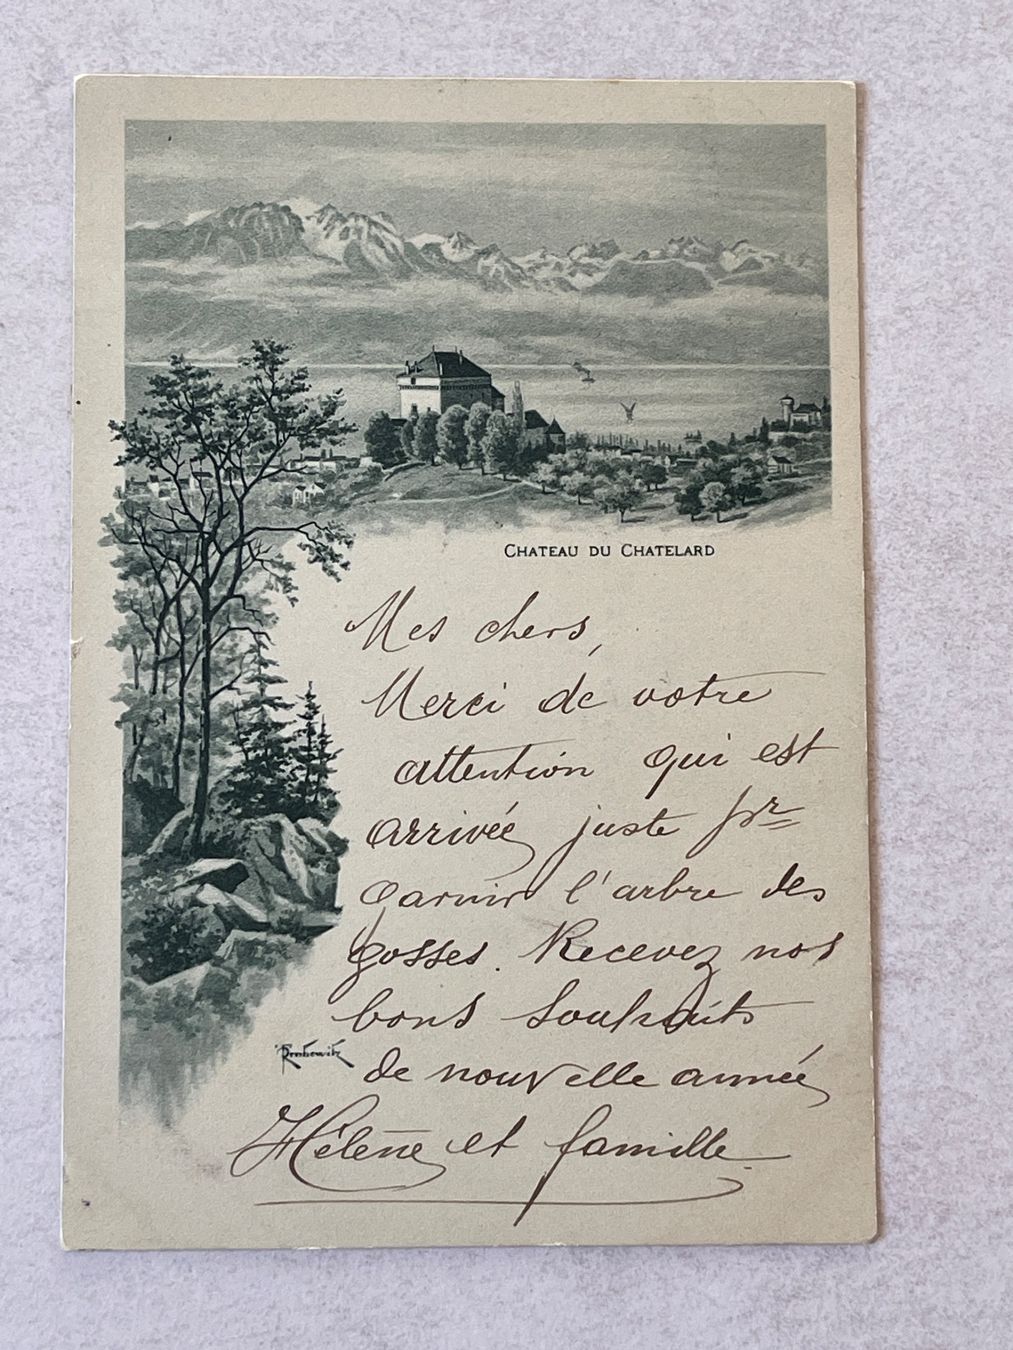 CHATEAU DU CHATELARD
Mes chers,
Merci de votre
attention qui est
arrivée juste pr
garnir l'arbre des
gosses. Recevez nos
bons souhaits
de nouvelle année
Hélène et famille